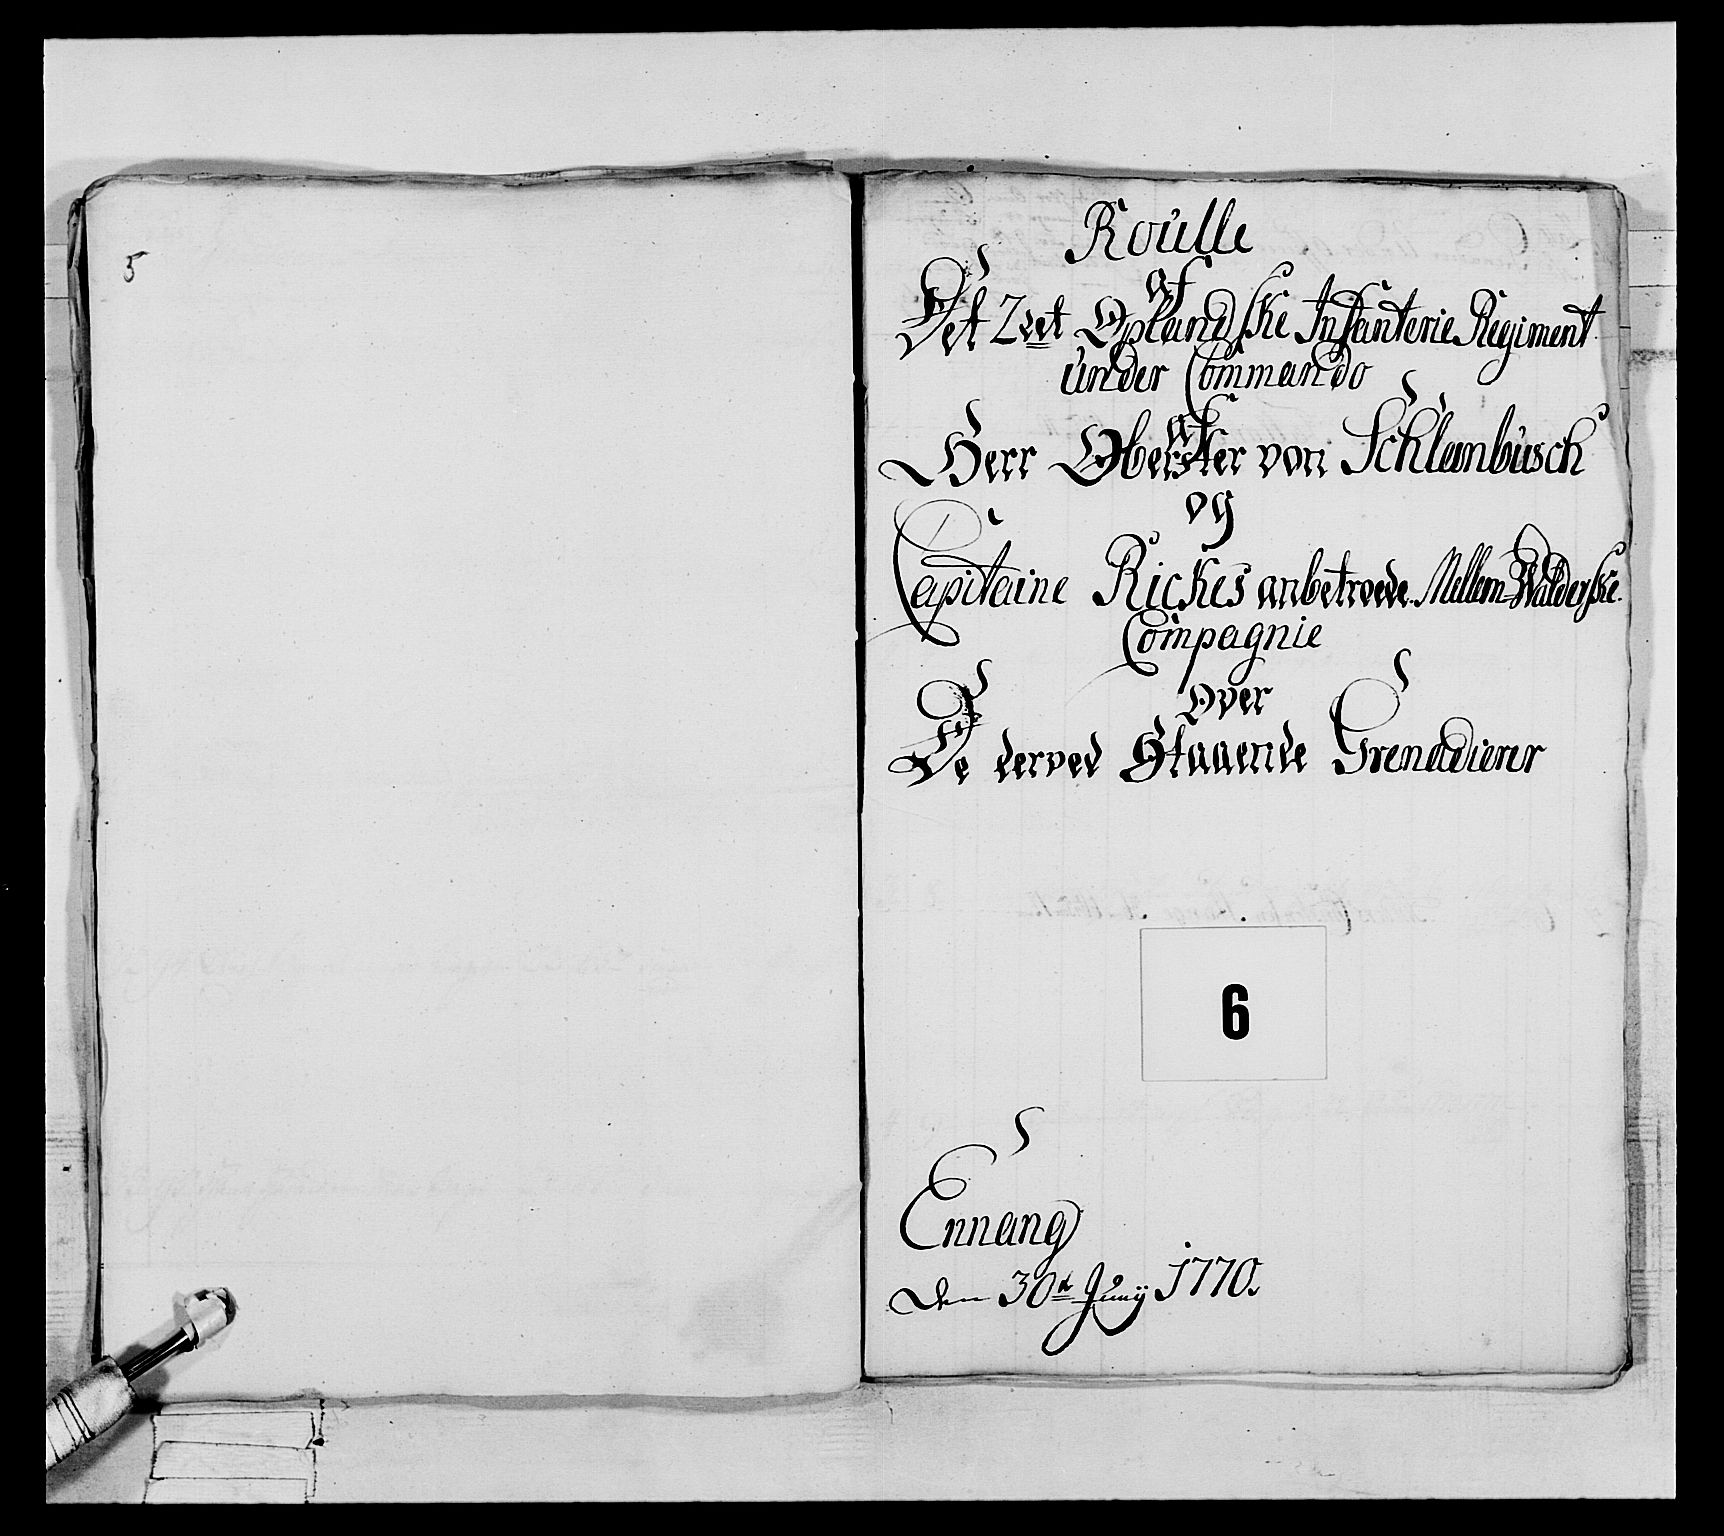 5
Roulle
af
Det 2det Oplandske Infanterie Regiment
under Commando
af
Herr Oberster von Schlambusch
og
Capitaine Rickes anbetroede Mellem-Walderske
Compagnie
over
De derved Staaende Grenadierer
6
Ennang
den 30te Junij 1770.